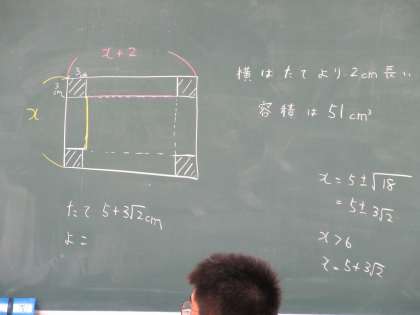 x+2
3cm
3cm
x
横はたてより2cm長い
容積は51cm³
x = 5±√18
= 5±3√2
x > 6
x = 5+3√2
たて 5+3√2cm
よこ